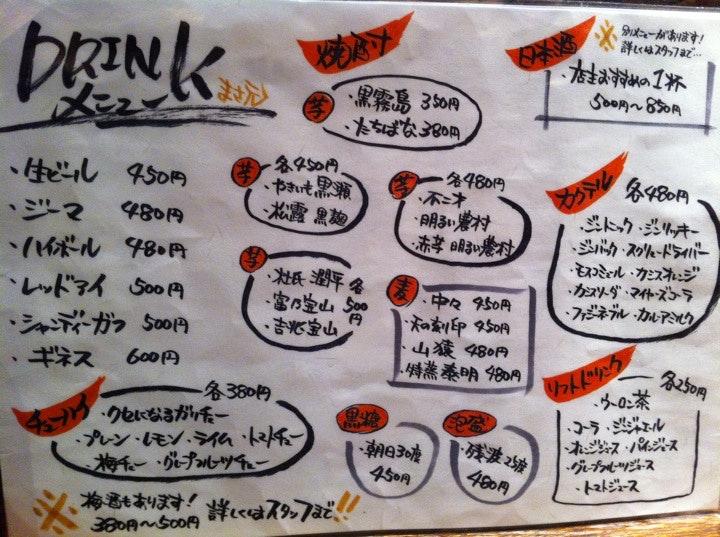 DRINK
メニュー
・生ビール 450円
・ジーマ 480円
・ハイボール 480円
・レッドアイ 500円
・シャンディーガフ 500円
・ギネス 600円
チューハイ 各380円
・クセになるガリチュー
・プレーン ・レモン ・ライム ・トマトチュー
・梅チュー ・グレープフルーツチュー
※ 梅酒もあります!
380円〜500円 詳しくはスタッフまで!!
焼酎
芋
・黒霧島 350円
・たちばな 380円
芋 各450円
・やきいも 黒瀬
・松露 黒麹
芋 各480円
・不二才
・明るい農村
・赤芋 明るい農村
芋
・杜氏 潤平
・富乃宝山
・吉兆宝山
各500円
麦
・中々 450円
・天の刻印 450円
・山猿 480円
・特蒸泰明 480円
黒糖
・朝日30度
450円
泡盛
・残波25度
480円
日本酒
※別メニューがあります!
詳しくはスタッフまで…
・店主おすすめの1杯
500円〜850円
カクテル 各480円
・ジントニック ・ジンリッキー
・ジンバック ・スクリュードライバー
・モスコミュール ・カシスオレンジ
・カシスソーダ ・マイヤーズコーラ
・ファジーネーブル ・カルーアミルク
ソフトドリンク 各250円
・ウーロン茶
・コーラ ・ジンジャエール
・オレンジジュース ・パインジュース
・グレープフルーツジュース
・トマトジュース